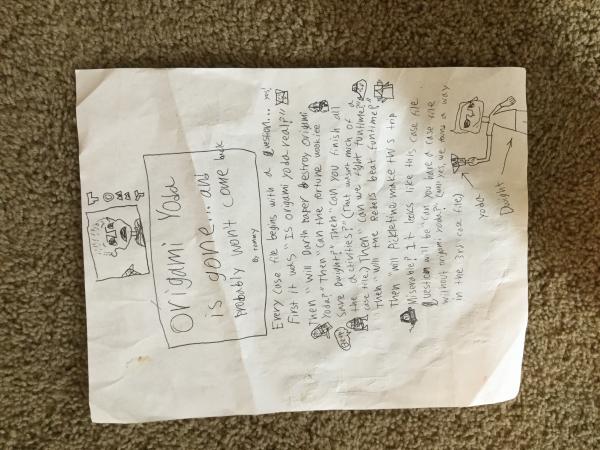 TOMMY
Origami Yoda
is gone... and
probably won't come back
By Tommy
Every case file begins with a question... yes!
First it was "Is origami Yoda real?"
Then "Will Darth Paper destroy origami
Yoda?" Then "Can the fortune wookiee
save Dwight?" Then "Can you finish all
the activities?" (That wasn't much of a
case file.) Then "can we fight funtime?"
Then "will the Rebels beat funtime?"
Then "Will Pickletine make this trip
Miserable? It looks like this case file
Question will be "Can you have a case file
without origami Yoda?" (well yes, we have a way
in the 3rd case file)
Yoda
Dwight